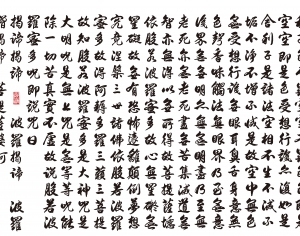 空空即是色受想行識亦復如是
舍利子是諸法空相不生不滅不
垢不淨不增不減是故空中無色無
受想行識無眼耳鼻舌身意無
色聲香味觸法無眼界乃至無意
識界無無明亦無無明盡乃至無
老死亦無老死盡無苦集滅道無
智亦無得以無所得故菩提薩埵
依般若波羅蜜多故心無罣礙無
罣礙故無有恐怖遠離顛倒夢想
究竟涅槃三世諸佛依般若波羅
蜜多故得阿耨多羅三藐三菩提
故知般若波羅蜜多是大神咒是
大明咒是無上咒是無等等咒能
除一切苦真實不虛故說般若波
羅蜜多咒即說咒曰
揭諦揭諦 波羅揭諦 波羅
僧揭諦 菩提薩婆訶